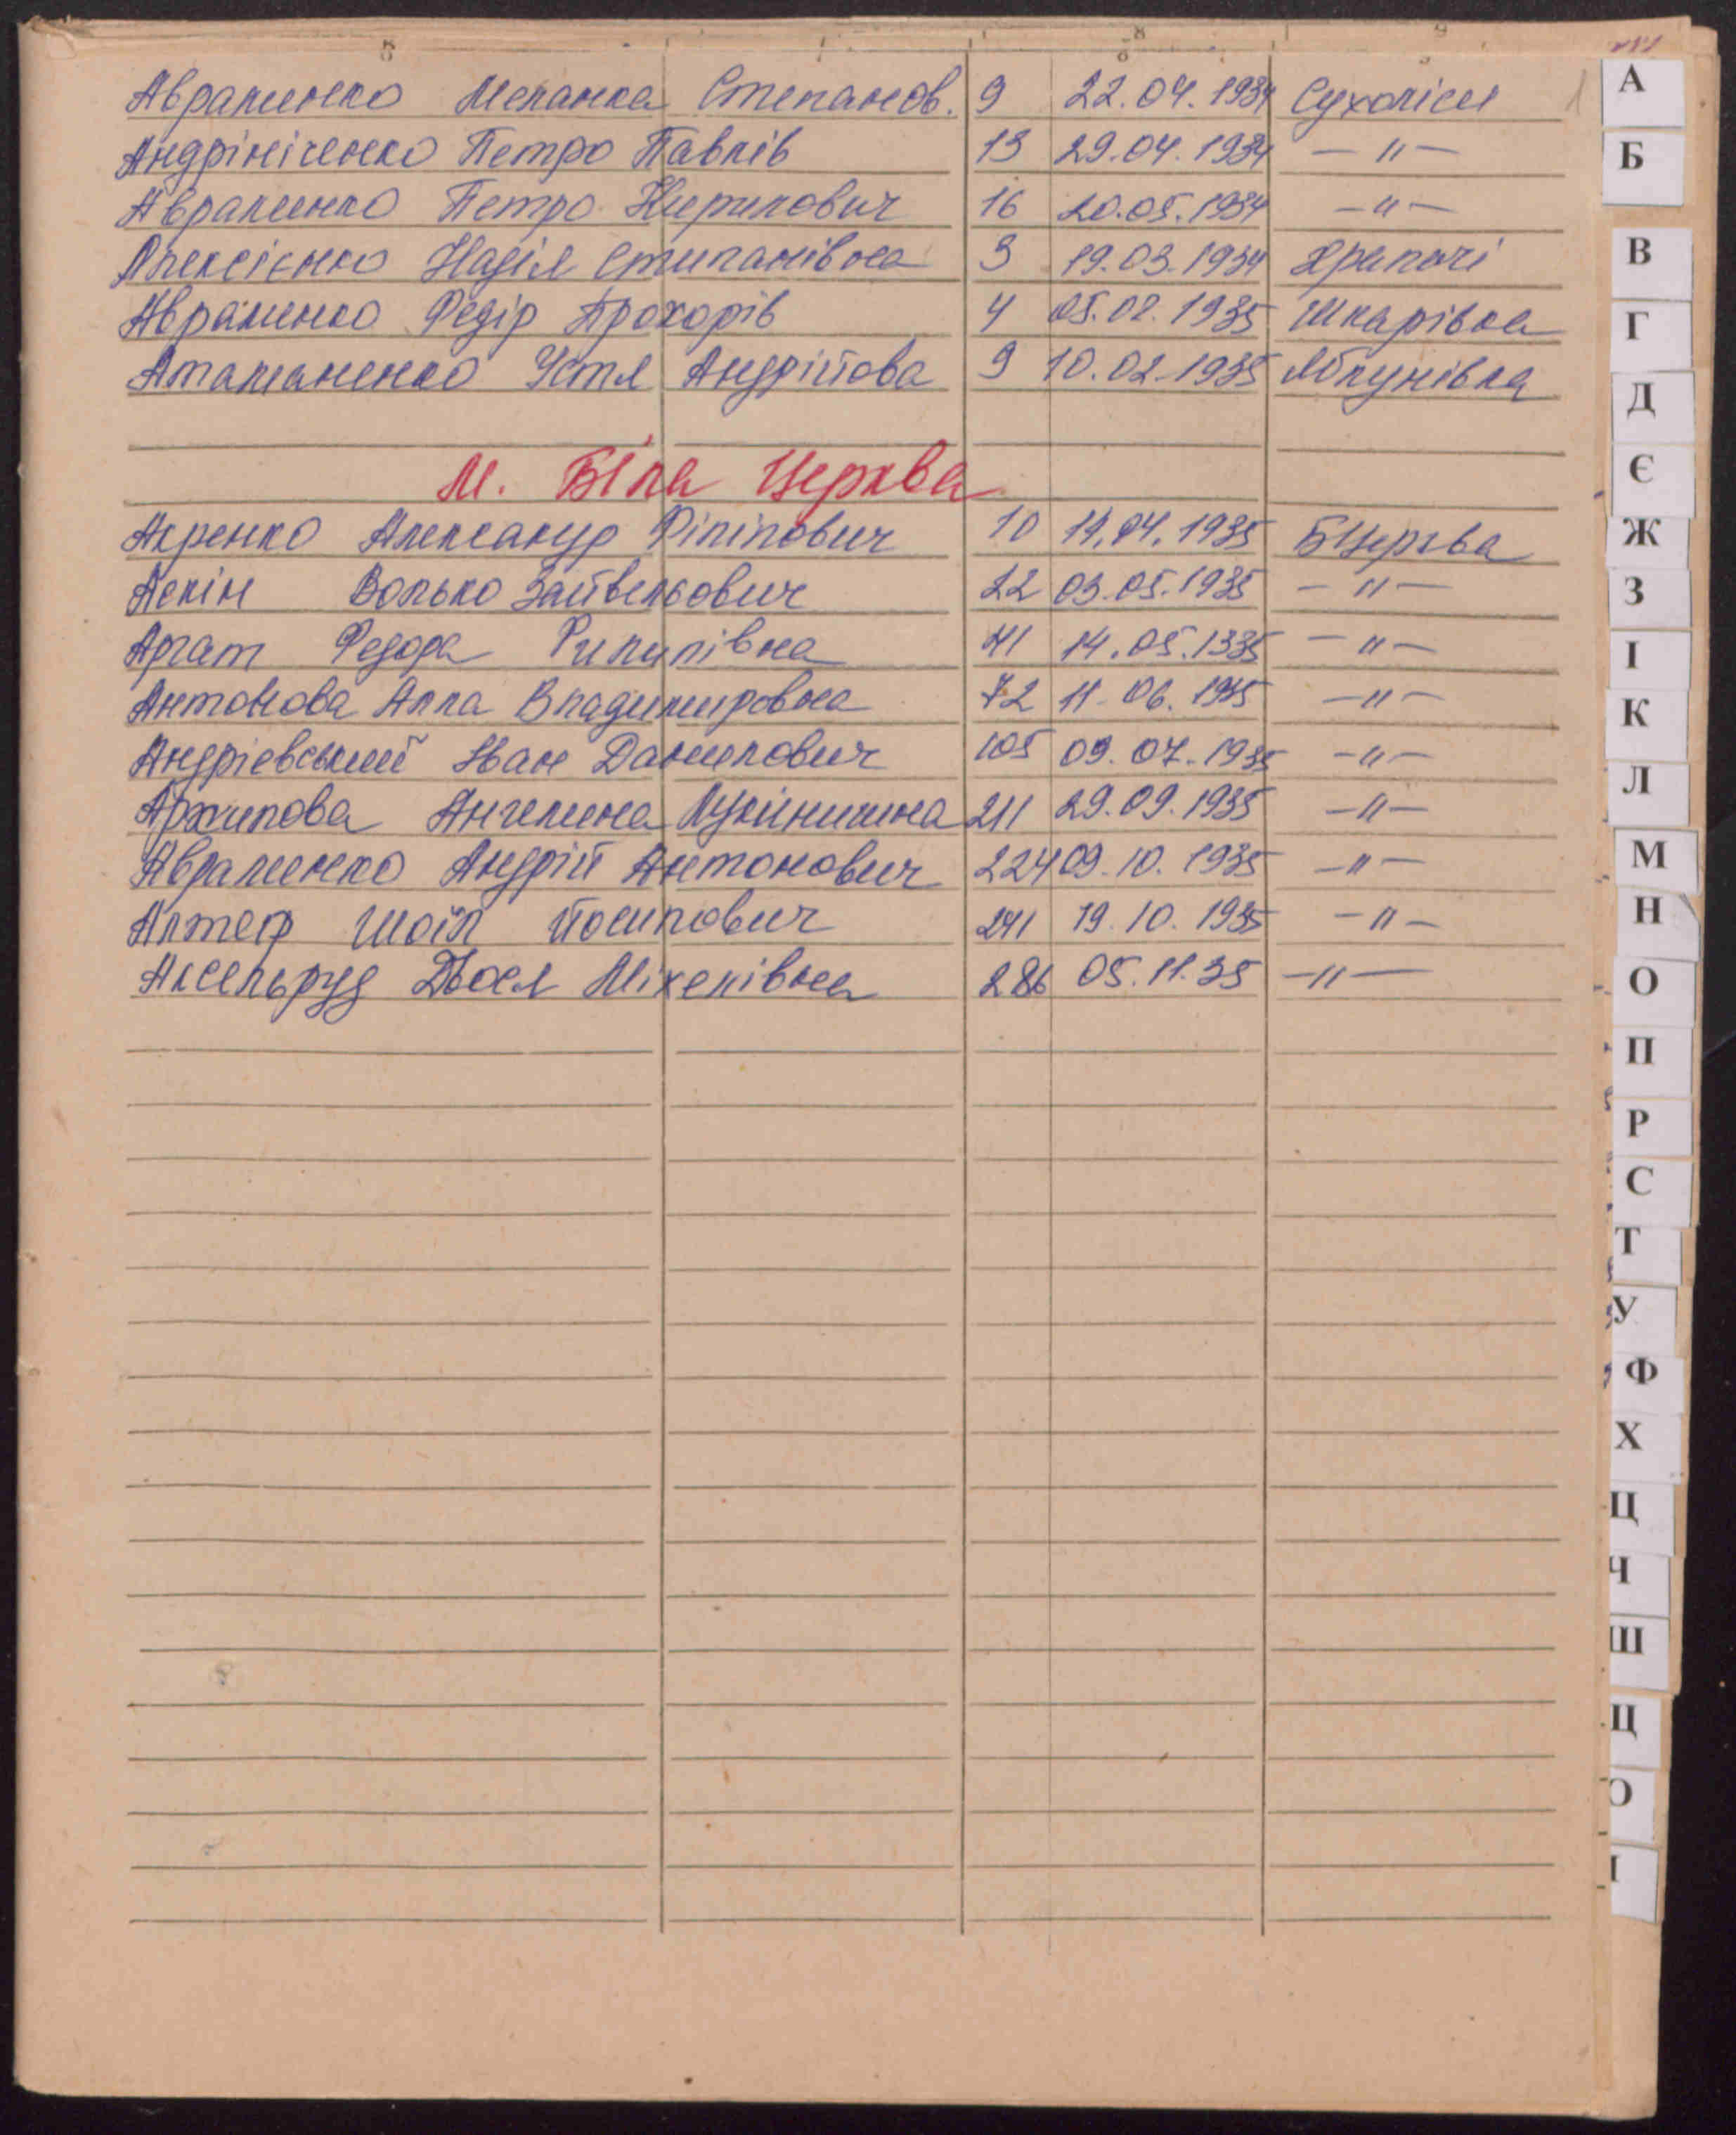 Авраменко Меланка Степанов. 9 22.04.1934 Сухоліси 1
Андрініченко Петро Павлів 13 29.04.1934 — " —
Авраменко Петро Кирилович 16 20.05.1934 — " —
Алексієнко Надія Стипанівна 3 19.03.1934 Храпачі
Авраменко Федір Прохорів 4 05.02.1935 Шкарівка
Атаманенко Устя Андрійова 9 10.02.1935 Яблунівка
М. Біла Церква
Акренко Александр Філіпович 10 11.04.1935 БЦерква
Аскін Волько Зайвельович 22 03.05.1935 — " —
Аргат Федора Филипівна 41 14.05.1935 — " —
Антонова Алла Владимировна 72 11.06.1935 — " —
Андрієвський Іван Данилович 105 09.07.1935 — " —
Архипова Ангелина 211 29.09.1935 — " —
Авраменко Андрій Антонович 224 09.10.1935 — " —
Алтер Шоїл Йосипович 241 19.10.1935 — " —
Аксельруд Міхелівна 286 05.11.35 — " —
А
Б
В
Г
Д
Є
Ж
З
І
К
Л
М
Н
О
П
Р
С
Т
У
Ф
Х
Ц
Ч
Ш